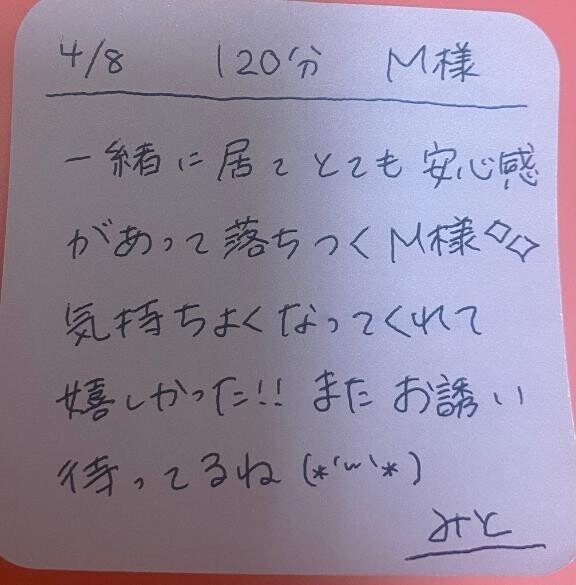 4/8 120分 M様
一緒に居てとても安心感
があって落ちつくM様◇◇
気持ちよくなってくれて
嬉しかった!! またお誘い
待ってるね(*'ω'*)
みと